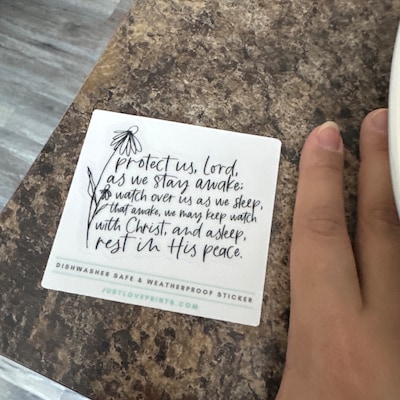 protect us, Lord,
as we stay awake;
watch over us as we sleep,
that awake, we may keep watch
with Christ, and asleep,
rest in His peace.
DISHWASHER SAFE & WEATHERPROOF STICKER
JUSTLOVEPRINTS.COM